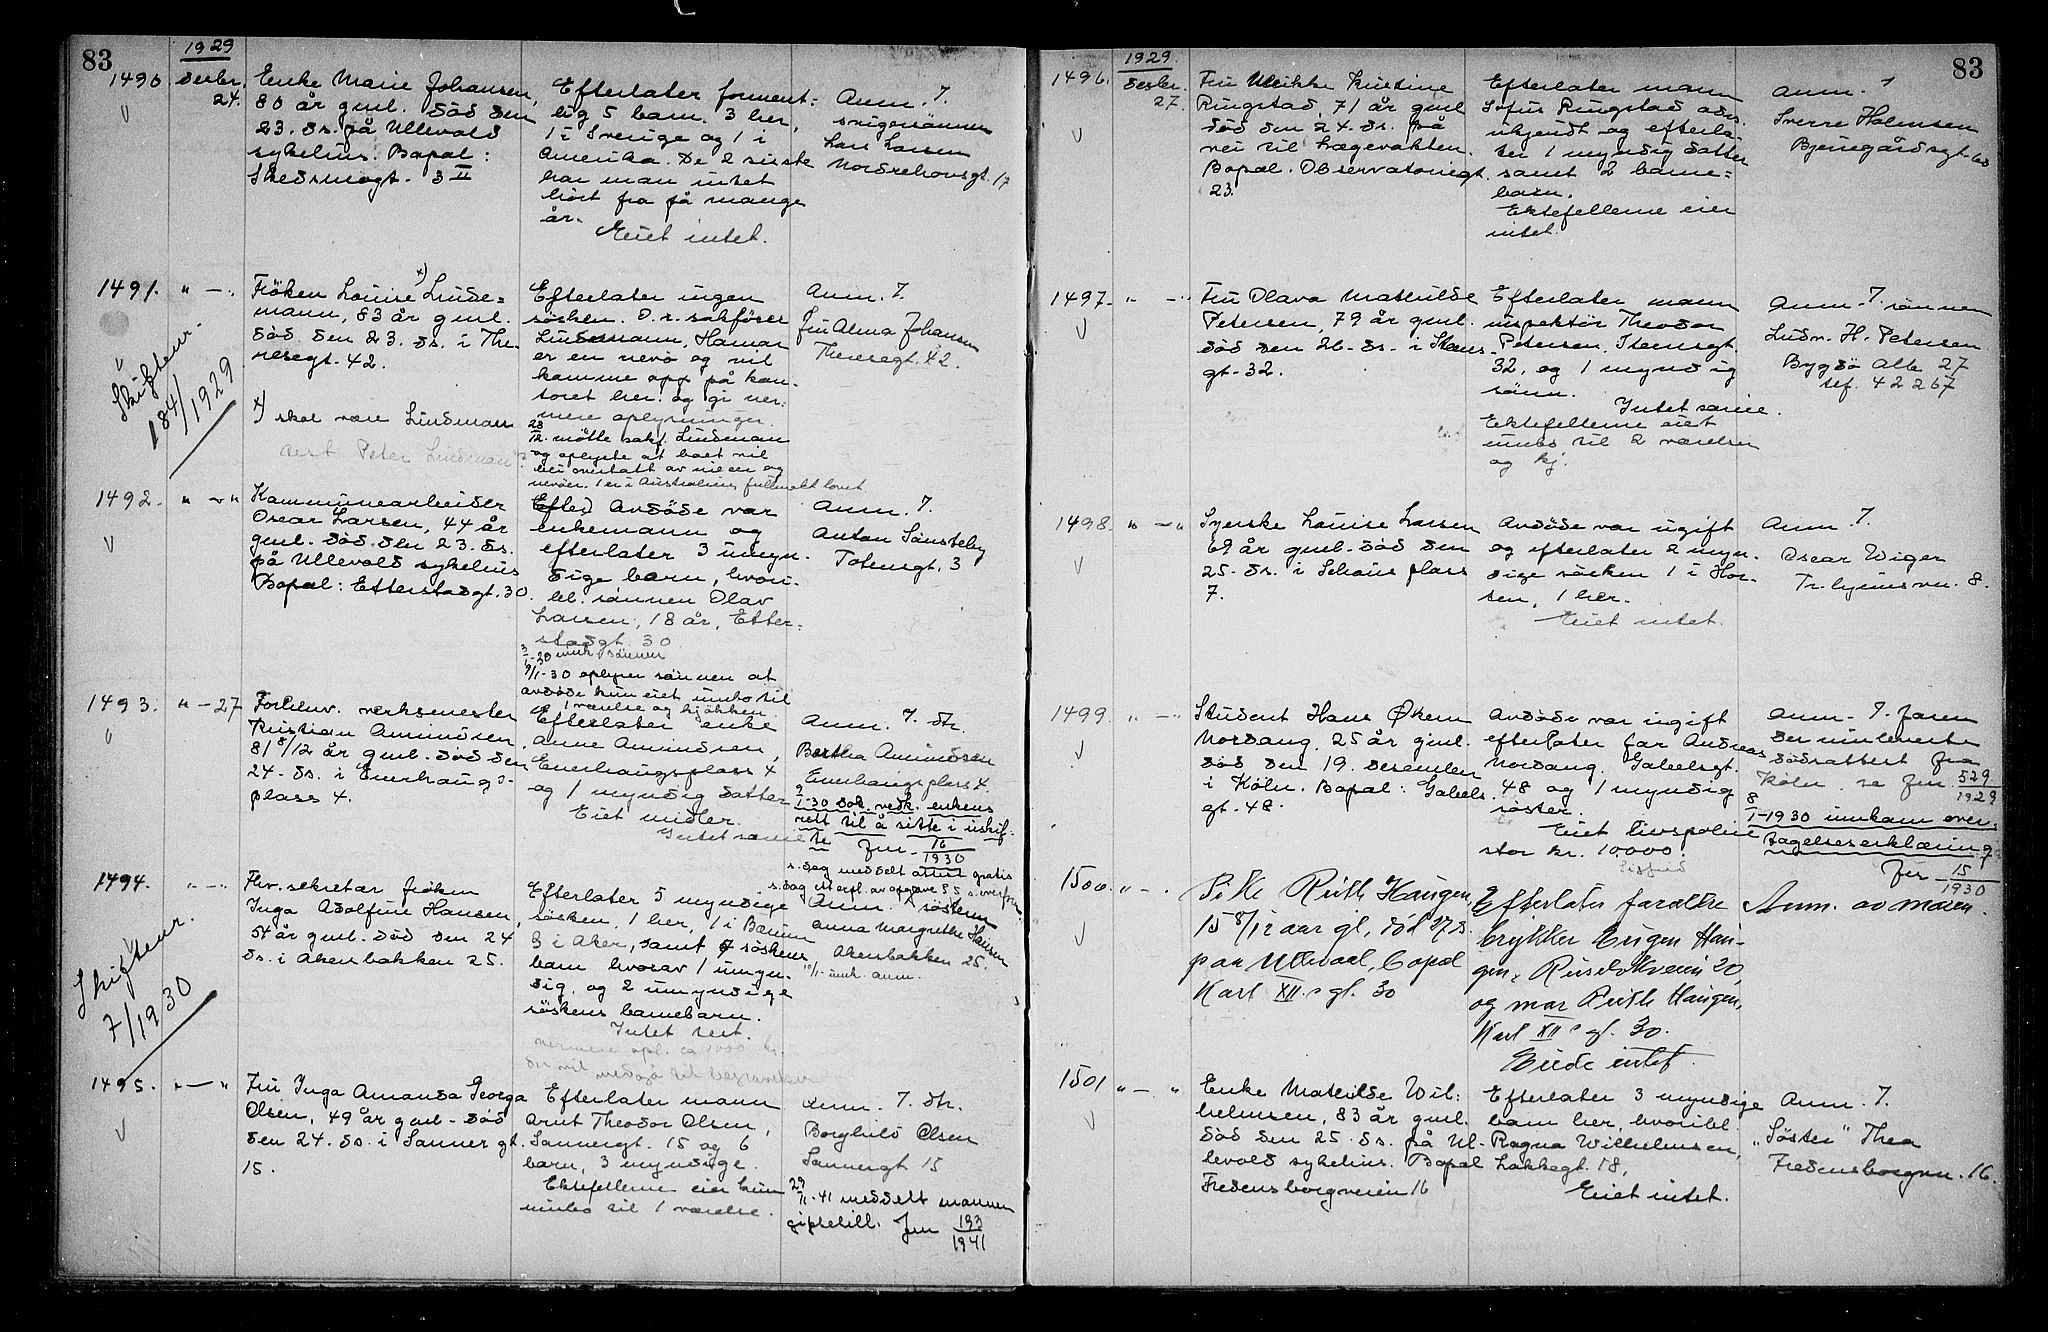 83
1929
1490
desbr.
24.
Enke Marie Johansen,
80 år gml. död den
23. ds. på Ullevold
sykehus. Bopæl:
Skedsmogt. 3 II
Efterlater forment-
lig 5 barn. 3 her,
1 i Sverige og 1 i
Amerika. De 2 siste
har man intet
hört fra på mange
år.
Eiet intet.
Anm. f.
svigersönnen
Lars Larsen
Nordrehovsgt. 17
1491.
" — "
Skiftenr.
184/1929
Fröken Louise x) Linde-
mann, 83 år gml.
död den 23. ds. i The-
resegt. 42.
x) skal være Lindman
test Peter Lindman
Efterlater ingen
sösken. O.r. sakförer
Lindemann, Hamar
er en nevö og vil
komme opp på kon-
toret her og gi nær-
mere oplysninger.
28/12. mötte sakf. Lindman
og oplyste at boet vil
bli overtatt av nieser og
nevöer. 1 er i Australien, fullmakt lovet
Anm. f.
Fru Alma Johansen
Theresegt. 42.
1492.
" — "
Kommunearbeider
Oscar Larsen, 44 år
gml. död den 23. ds.
på Ullevold sykehus
Bopæl: Etterstadgt. 30.
Avdöde var
enkemann og
efterlater 3 umyn-
dige barn, hvori-
bl. sönnen Olav
Larsen, 18 år, Etter-
stadgt. 30
3/1-30 innk sönnen
9/1-30 oplyser sönnen at
avdöde kun eiet innbo til
1 værelse og kjökken.
Anm. f.
Anton Sönsteby
Totensgt. 3
1493.
" — 27
Forhenv. verksmester
Kristian Amundsen,
81 8/12 år gml. död den
24. ds. i Enerhaugs-
plass 4.
Efterlater enke
Anne Amundsen,
Enerhaugsplass 4
og 1 myndig datter
Eiet midler.
Intet særeie
Anm. f. dtr.
Bertha Amundsen
Enerhaugsplass 4.
9/1-30 dok. vedk. enkens
rett til å sitte i uskif-
te Jnr 16/1930
s. dag meddelt attest gratis
1494.
" — "
Skiftenr.
7/1930
Fhv. sekretær fröken
Inga Adolfine Hansen,
54 år gml. död den 24
ds. i Akersbakken 25.
Efterlater 5 myndige
sösken, 1 her, 1 i Bærum
3 i Aker, samt 7 sösken-
barn hvorav 1 umyn-
dig og 2 umyndige
söskens barnebarn.
Intet test.
nærmere opl. ca 1000 kr.
der vil medgå til begravelsen
Anm. f. söstern
Anna Margrethe Hansen
Akersbakken 25.
10/1- innk. anm.
1495.
" — "
Fru Inga Amanda Georga
Olsen, 49 år gml. död
den 24. ds. i Sannergt.
15.
Efterlater mann
Arnt Theodor Olsen,
Sannergt. 15 og 6
barn, 3 myndige.
Ektefellerne eier kun
innbo til 1 værelse.
Anm. f. dtr.
Borghild Olsen
Sannergt 15
29/11-41 meddelt mannen
giftetill. Jnr 193/1941
83
1929
1496.
desbr.
27.
Fru Ulrikke Kristine
Ringstad, 71 år gml
död den 24. ds. på
vei til Lægevakten.
Bopæl. Observatoriegt.
23.
Efterlater mann
Sofus Ringstad adr.
ukjendt og efterla-
ter 1 myndig datter
samt 2 barne-
barn.
Ektefellerne eier
intet.
Anm. f
Sverre Halvorsen
Bjerregårdsgt. 60
1497.
" — "
Fru Olava Mathilde
Petersen, 79 år gml.
död den 26. ds. i Stens-
gt. 32.
Efterlater mann
inspektör Theodor
Petersen, Stensgt.
32, og 1 myndig
sönn.
Intet særeie.
Ektefellerne eiet
innbo til 2 værelser
og kj.
Anm. f. sönnen
Ludv. H. Petersen
Bygdö Alle 27
tef. 42267
1498.
" — "
Syerske Louise Larsen
69 år gml. död den
25. ds. i Schous plass
7.
Avdöde var ugift
og efterlater 2 myn-
dige sösken 1 i Hor-
ten, 1 her.
Eiet intet.
Anm. f.
Oscar Wiger
Trondhjemsvn. 8.
1499.
" — "
Student Hans Økern
Nordang, 25 år gml.
död den 19. desember
i Køln. Bopæl: Gabels-
gt. 48.
Avdöde var ugift
efterlater far Andreas
Nordang, Gabelsgt.
48 og 1 myndig
söster.
Eiet livspolise
stor kr. 10000.
Anm. f. faren
der innleverte
dödsattest fra
Köln, se Jnr. 529/1929
8/1-1930 innkom over-
tagelseserklæring
Jnr 15/1930
1500.
" — "
Pike Ruth Haugen,
15 8/12 aar gl, död 27 ds.
paa Ullevaal, bopæl
Karl XII s gt. 30
Efterlater foreldre
brygger Eugen Hau-
gen, Ruseløkveien 20,
og mor Ruth Haugen,
Karl XII s gt. 30.
Eiede intet
Anm. av moren.
1501
" — "
Enke Mathilde Wil-
helmsen, 83 år gml.
död den 25. ds. på Ul-
levold sykehus. Bopæl
Fredensborgveien 16
Efterlater 3 myndige
barn her, hvoribl.
Ragna Wilhelmsen,
Lakkegt. 18,
Eiet intet.
Anm. f.
"Söster" Thea
Fredensborgvn. 16.